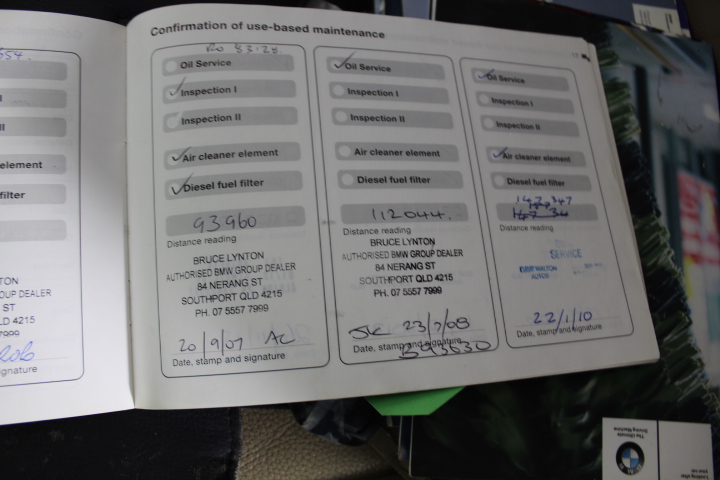 Confirmation of use-based maintenance
element
filter
TON
OUP DEALER
ST
LD 4215
7999
ignature
Oil Service
Inspection I
Inspection II
Air cleaner element
Diesel fuel filter
93960
Distance reading
BRUCE LYNTON
AUTHORISED BMW GROUP DEALER
84 NERANG ST
SOUTHPORT QLD 4215
PH. 07 5557 7999
20/9/07 AC
Date, stamp and signature
Oil Service
Inspection I
Inspection II
Air cleaner element
Diesel fuel filter
112044.
Distance reading
BRUCE LYNTON
AUTHORISED BMW GROUP DEALER
84 NERANG ST
SOUTHPORT QLD 4215
PH. 07 5557 7999
23/7/08
Date, stamp and signature
B93630
Oil Service
Inspection I
Inspection II
Air cleaner element
Diesel fuel filter
Distance reading
SERVICE
22/1/10
Date, stamp and signature
The Ultimate
Driving Machine